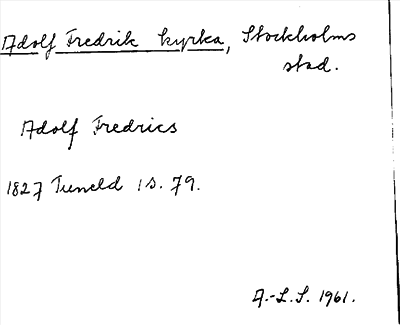 Adolf Fredrik kyrka, Stockholms
stad.
Adolf Fredrics
1827 Tuneld 1 s. 79.
A.-L.S. 1961.